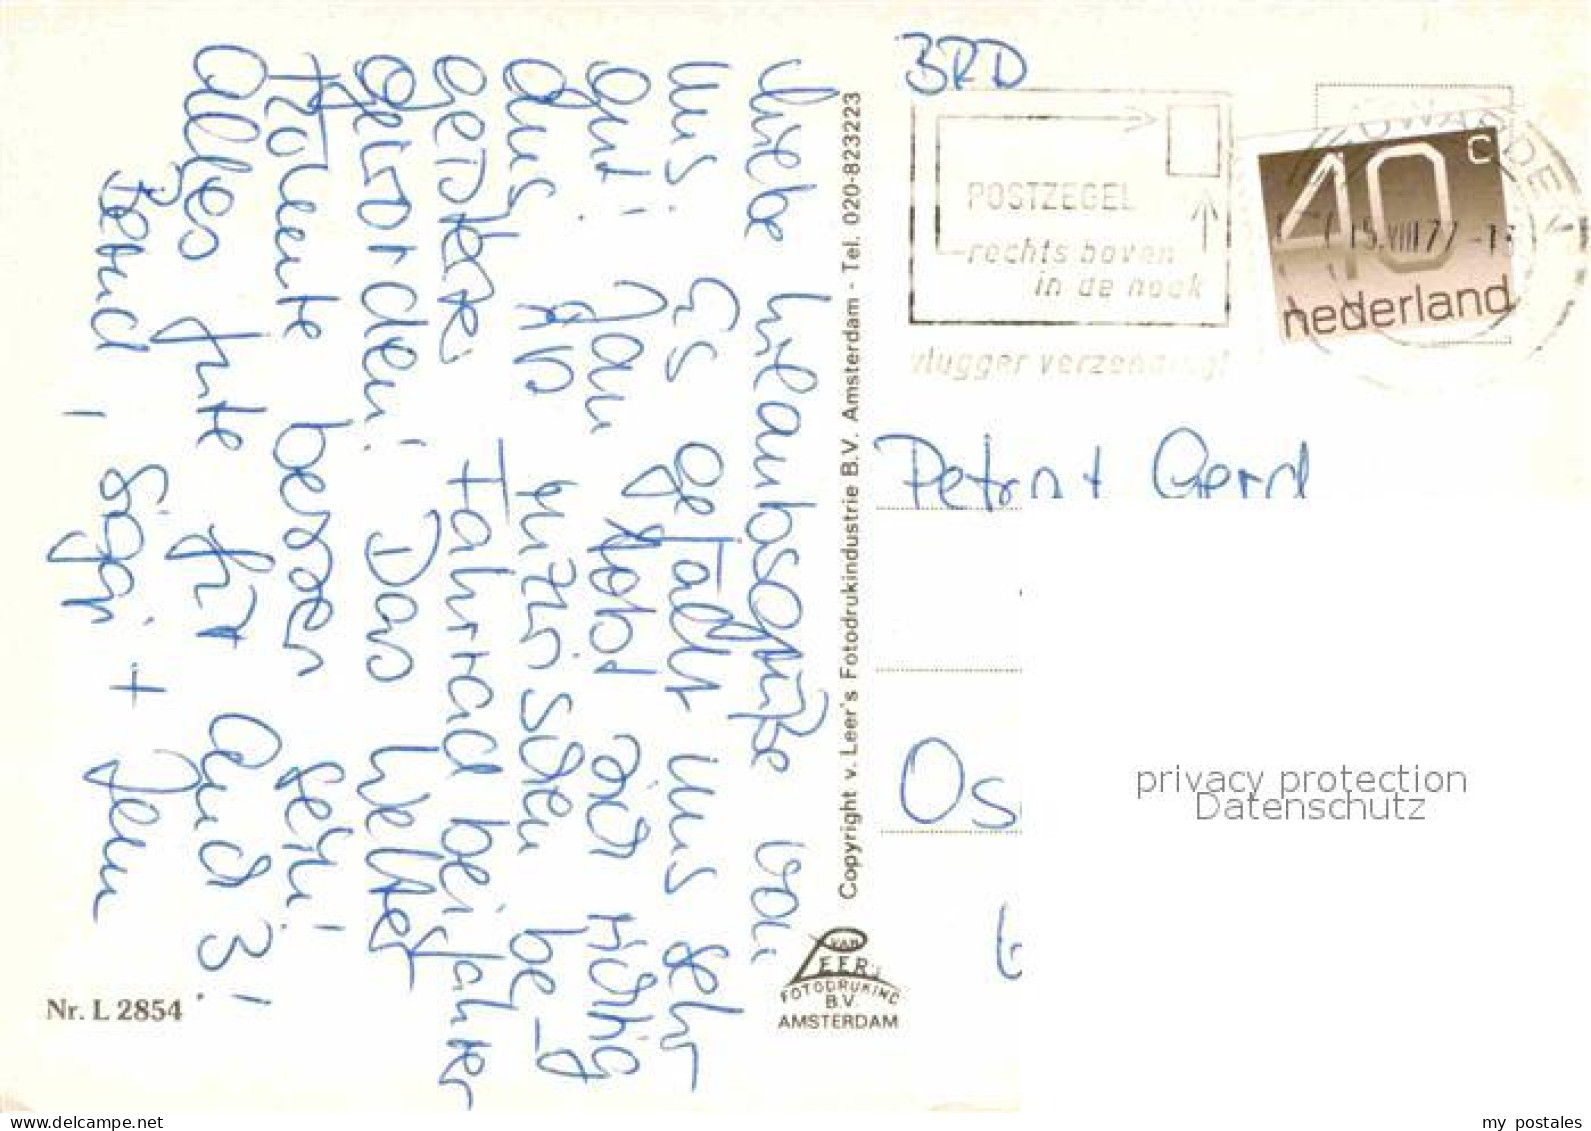 Liebe Urlaubsgrüße von
uns. Es gefällt uns sehr
gut! Jan tobt sich richtig
aus. Ab mittwochen be-
geisterter Fahrrad beifahrer
geworden! Das Wetter
könnte besser sein!
Alles Gute für Euch 3!
Bernd, Sigi + Jens
Nr. L 2854
Copyright v. Leer's Fotodrukindustrie B.V. Amsterdam - Tel. 020-823223
VAN LEER'S
FOTODRUKIND
B.V.
AMSTERDAM
BRD
POSTZEGEL
rechts boven
in de hoek
vlugger verzending!
15 VIII 77
40 c
nederland
Petra + Gerd
Os
privacy protection
Datenschutz
www.delcampe.net
my_postales